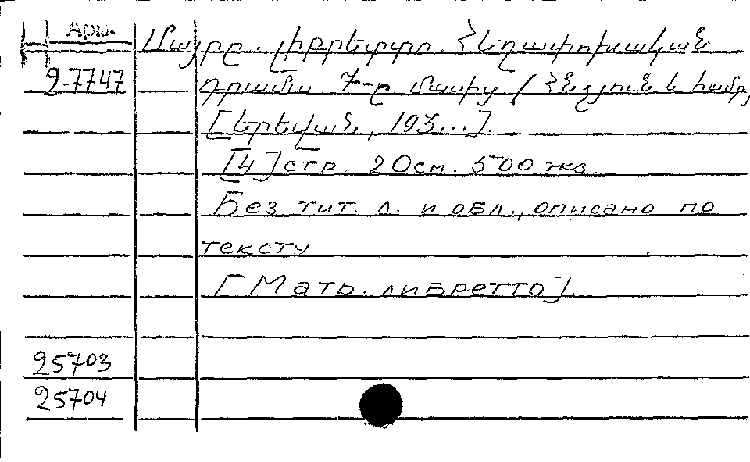 Арм.
2-7747
Մայրը. լիբրետտո. Հեղափոխական
դրամա 7-ը մասից / Հնչյուն և համր,
[Երեվան, 193...]
[4] стр. 20см. 500 экз.
Без тит. л. и обл., описано по
тексту
[Мать. либретто]
25703
25704